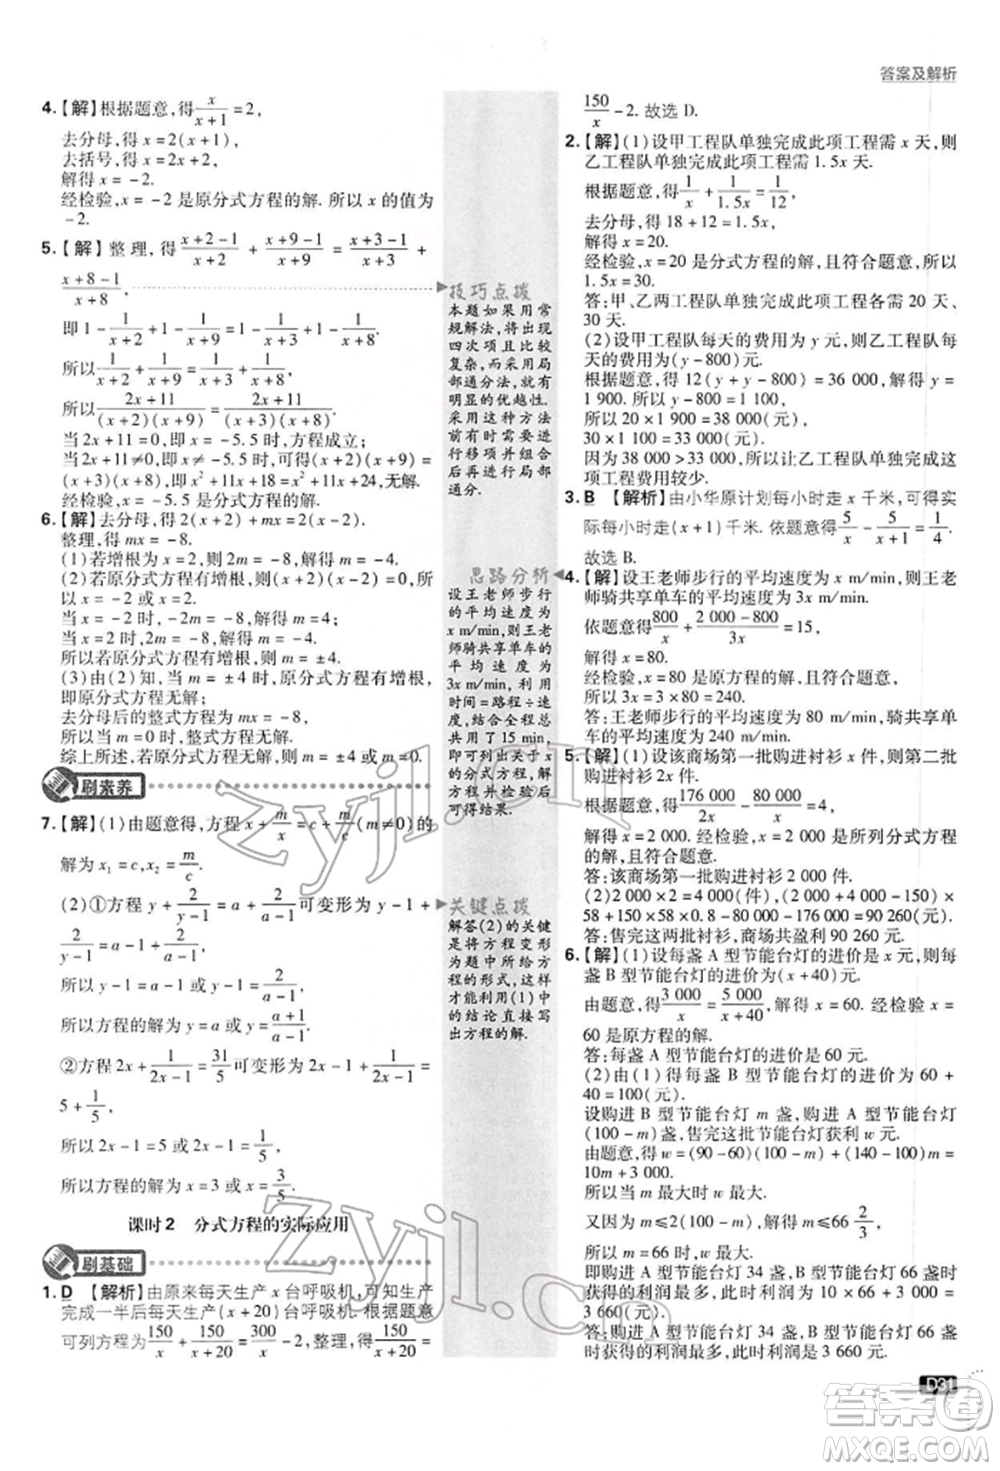 答案及解析
4.【解】根据题意,得x/(x+1)=2,
去分母,得 x=2(x+1),
去括号,得 x=2x+2,
解得 x=-2.
经检验,x=-2 是原分式方程的解.所以 x 的值为
-2.
5.【解】整理,得(x+2-1)/(x+2)+(x+9-1)/(x+9)=(x+3-1)/(x+3)+
(x+8-1)/(x+8),
即 1-1/(x+2)+1-1/(x+9)=1-1/(x+3)+1-1/(x+8),
所以1/(x+2)+1/(x+9)=1/(x+3)+1/(x+8),
所以(2x+11)/((x+2)(x+9))=(2x+11)/((x+3)(x+8)).
当 2x+11=0,即 x=-5.5 时,方程成立;
当 2x+11≠0,即 x≠-5.5 时,(x+2)(x+9)=
(x+3)(x+8),即 x²+11x+18=x²+11x+24,无解.
经检验,x=-5.5 是分式方程的解.
6.【解】去分母,得 2(x+2)+mx=x-2x+4,
整理,得 mx=-8.
(1)若增根为 x=2,则 2m=-8,解得 m=-4.
(2)若原分式方程有增根,则(x+2)(x-2)=0,
所以 x=-2 或 x=2.
当 x=-2 时,-2m=-8,解得 m=4;
当 x=2 时,2m=-8,解得 m=-4.
所以若原分式方程有增根,则 m=±4.
(3)由(2)知,当 m=±4 时,原分式方程有增根,
即原分式方程无解;
去分母后的整式方程为 mx=-8,
当 m=0 时,整式方程无解.
综上所述,若原分式方程无解,则 m=±4 或 m=0.
刷素养
7.【解】(1)由题意得,方程 x+m/x=c+m/c(m≠0)的
解为 x₁=c,x₂=m/c.
(2)①方程 y+2/(y-1)=a+2/(a-1)可变形为 y-1+
2/(y-1)=a-1+2/(a-1),
所以 y-1=a-1 或 y-1=2/(a-1),
所以方程的解为 y=a 或 y=(a+1)/(a-1).
②方程 2x+1/(2x-1)=31/5可变形为 2x-1+1/(2x-1)=
5+1/5,
所以 2x-1=5 或 2x-1=1/5,
所以方程的解为 x=3 或 x=3/5.
课时2 分式方程的实际应用
刷基础
1. D 【解析】由原来每天生产 x 台呼吸机,可知生产
完成一半后每天生产(x+20)台呼吸机.根据题意
可列方程为150/x+150/(x+20)=300/x-2,整理,得150/(x+20)=
技巧点拨
本题如果用常
规解法,将出现
四次项且比较
复杂,而采用局
部通分法,就有
明显的优越性.
采用这种方法
前有时需要进
行移项并组合
后再进行局部
通分.
思路分析
设王老师步行
的平均速度为
x m/min,则王老
师骑共享单车的
平均速度为
3x m/min,利用
时间=路程÷速
度,结合全程总
共用了 15 min,
即可列出关于x
的分式方程,解
方程并检验后
可得结果.
关键点拨
解答(2)的关键
是将方程变形
为题中所给方
程的形式,这样
才能利用(1)中
的结论直接写
出方程的解.
150/x-2.故选 D.
2.【解】(1)设甲工程队单独完成此项工程需 x 天,则
乙工程队单独完成此项工程需 1.5x 天.
根据题意,得1/x+1/1.5x=1/12,
去分母,得 18+12=1.5x,
解得 x=20.
经检验,x=20 是分式方程的解,且符合题意,所以
1.5x=30.
答:甲、乙两工程队单独完成此项工程各需 20 天、
30 天.
(2)设甲工程队每天的费用为 y 元,则乙工程队每
天的费用为(y-800)元.
根据题意得 12(y+y-800)=36 000,解得 y=
1 900,则 y-800=1 100,
所以 20×1 900=38 000(元),
30×1 100=33 000(元).
因为 38 000>33 000,所以让乙工程队单独完成这
项工程费用较少.
3. B 【解析】由小华原计划每小时走 x 千米,可得实
际每小时走(x+1)千米.依题意得5/x-5/(x+1)=1/4.
故选 B.
4.【解】设王老师步行的平均速度为 x m/min,则王老
师骑共享单车的平均速度为 3x m/min,
依题意得800/x+(2 000-800)/3x=15,
解得 x=80.
经检验,x=80 是原方程的解,且符合题意,
所以 3x=3×80=240.
答:王老师步行的平均速度为 80 m/min,骑共享单
车的平均速度为 240 m/min.
5.【解】(1)设该商场第一批购进衬衫 x 件,则第二批
购进衬衫 2x 件.
根据题意,得176 000/2x-80 000/x=4,
解得 x=2 000.经检验,x=2 000 是所列分式方程
的解,且符合题意.
答:该商场第一批购进衬衫 2 000 件.
(2)2 000×2=4 000(件),(2 000+4 000-150)×
58+150×58×0.8-80 000-176 000=90 260(元).
答:售完这两批衬衫,商场共盈利 90 260 元.
6.【解】(1)设每盏 A 型节能台灯的进价是 x 元,则每
盏 B 型节能台灯的进价为(x+40)元.
由题意,得3 000/x=5 000/(x+40),解得 x=60.经检验,x=
60 是原方程的解.
答:每盏 A 型节能台灯的进价是 60 元.
(2)由(1)可得每盏 B 型节能台灯的进价为 60+
40=100(元).
设购进 B 型节能台灯 m 盏,则购进 A 型节能台灯
(100-m)盏,售完这批节能台灯获利 w 元.
由题意,得 w=(90-60)(100-m)+(140-100)m=
10m+3 000,
所以当 m 最大时,w 最大.
又因为 m≤2(100-m),所以 m≤66 2/3,
所以当 m=66 时,w 最大.
即购进 A 型节能台灯 34 盏,购进 B 型节能台灯 66
盏时获得的利润最多,此时利润为 10×66+3 000=
3 660(元).
答:购进 A 型节能台灯 34 盏,购进 B 型节能台灯 66 盏
时获得的利润最多,此时利润是 3 660 元.
D31
zyjl.cn
zyjl.cn
答案圈
MXQE.COM